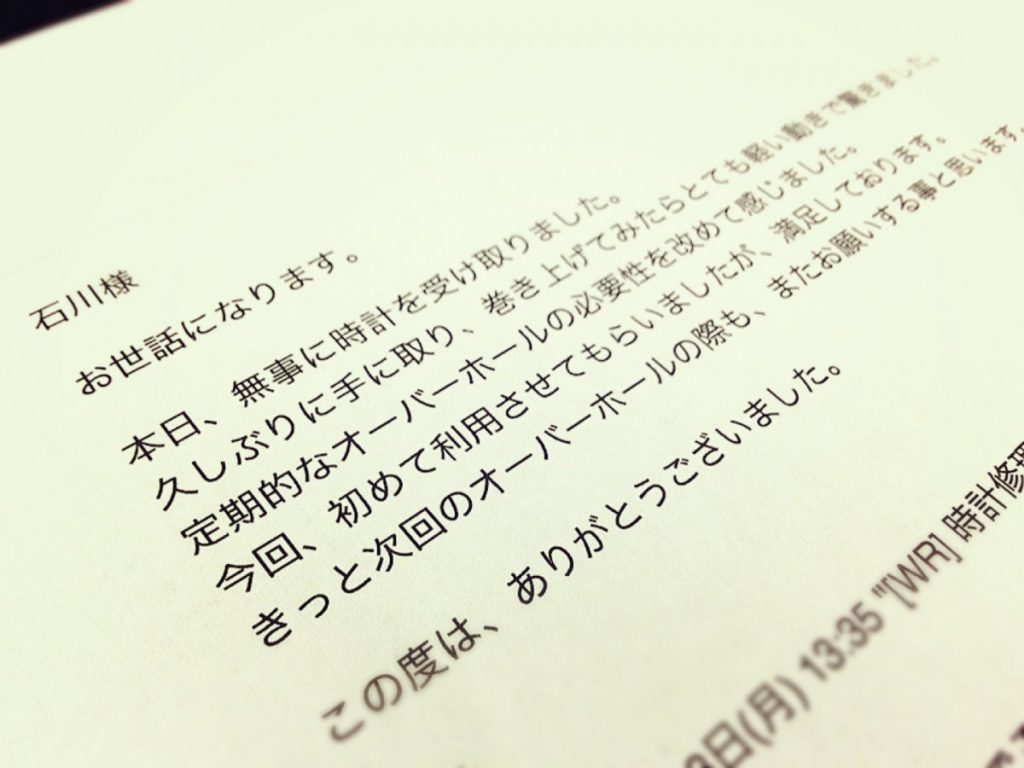 石川様
お世話になります。
本日、無事に時計を受け取りました。
久しぶりに手に取り、巻き上げてみたらとても軽い動きで驚きました。
定期的なオーバーホールの必要性を改めて感じました。
今回、初めて利用させてもらいましたが、満足しております。
きっと次回のオーバーホールの際も、またお願いする事と思います。
この度は、ありがとうございました。
日(月) 13:35 "'[WR] 時計修理